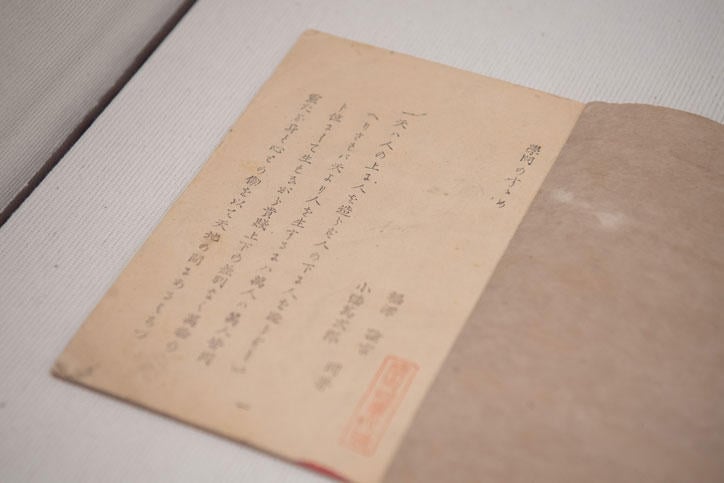 學問のすゝめ
福澤 諭吉
小幡篤次郎 同著
一 天ハ人の上に人を造らず人の下に人を造らずと云
へりされバ天より人を生ずるにハ萬人ハ萬人皆同
じ位にして生れながら貴賤上下の差別なく萬物の
靈たる身と心との働を以て天地の間にあるよろづ